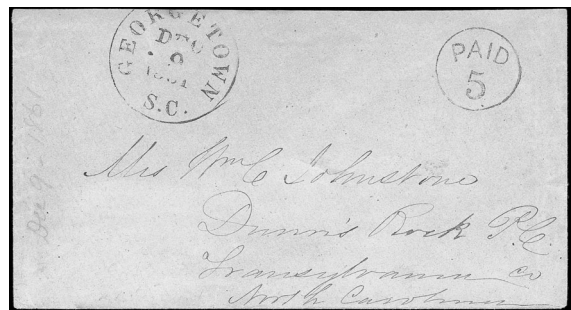 GEORGETOWN
DEC
9
1861
S.C.
PAID
5
Dec 9 - 1861
Mrs Wm C Johnstone
Dunn's Rock P.O.
Transylvania co
North Carolina